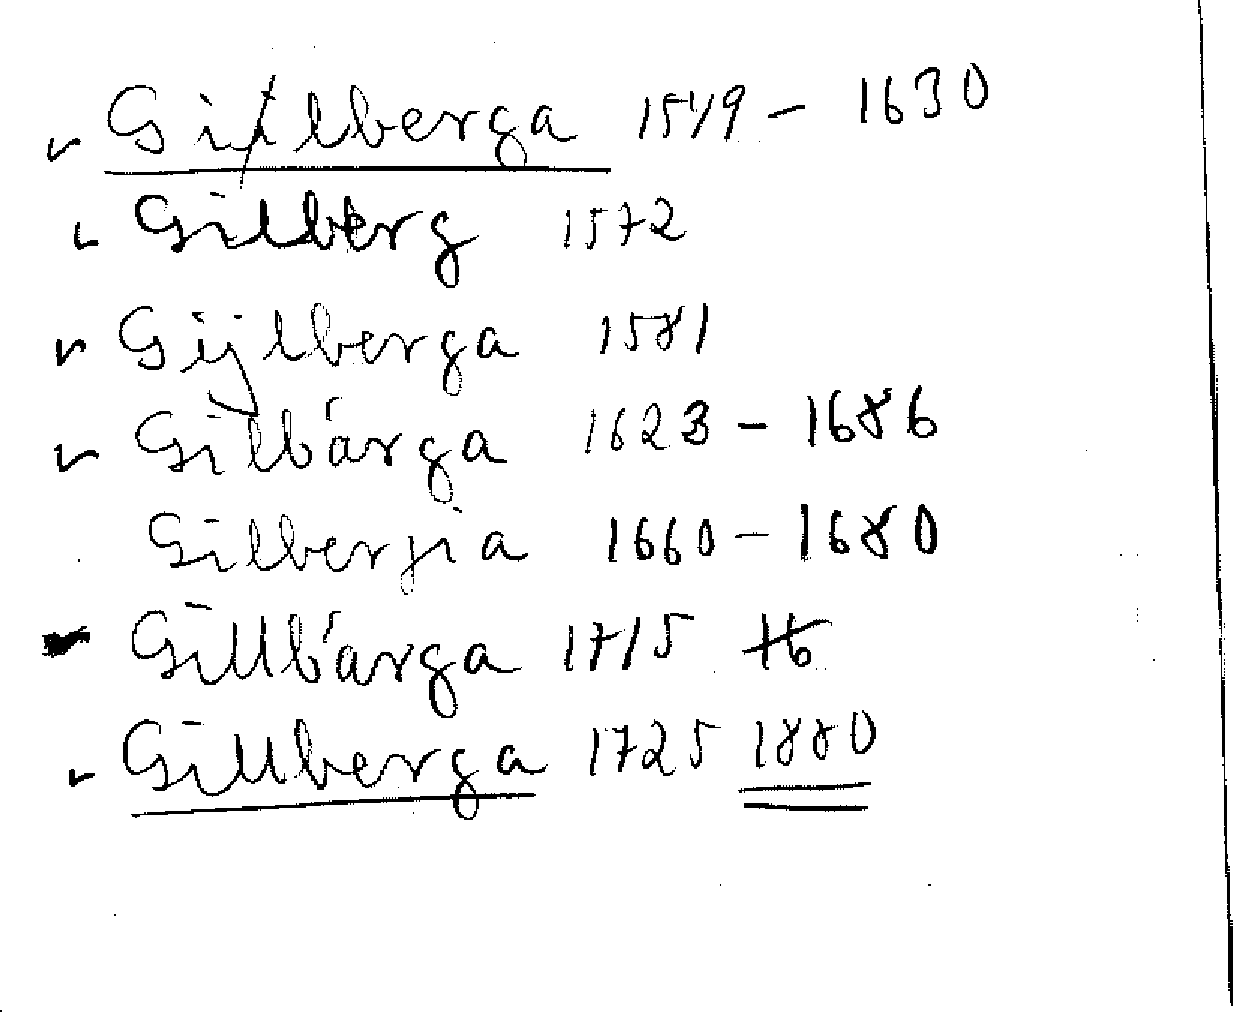 Gilberga 1549 – 1630
Gilberg 1572
Gijlberga 1581
Gilbärga 1623 – 1686
Gilbergia 1660 – 1680
Gillbärga 1715
Gillberga 1725 1880